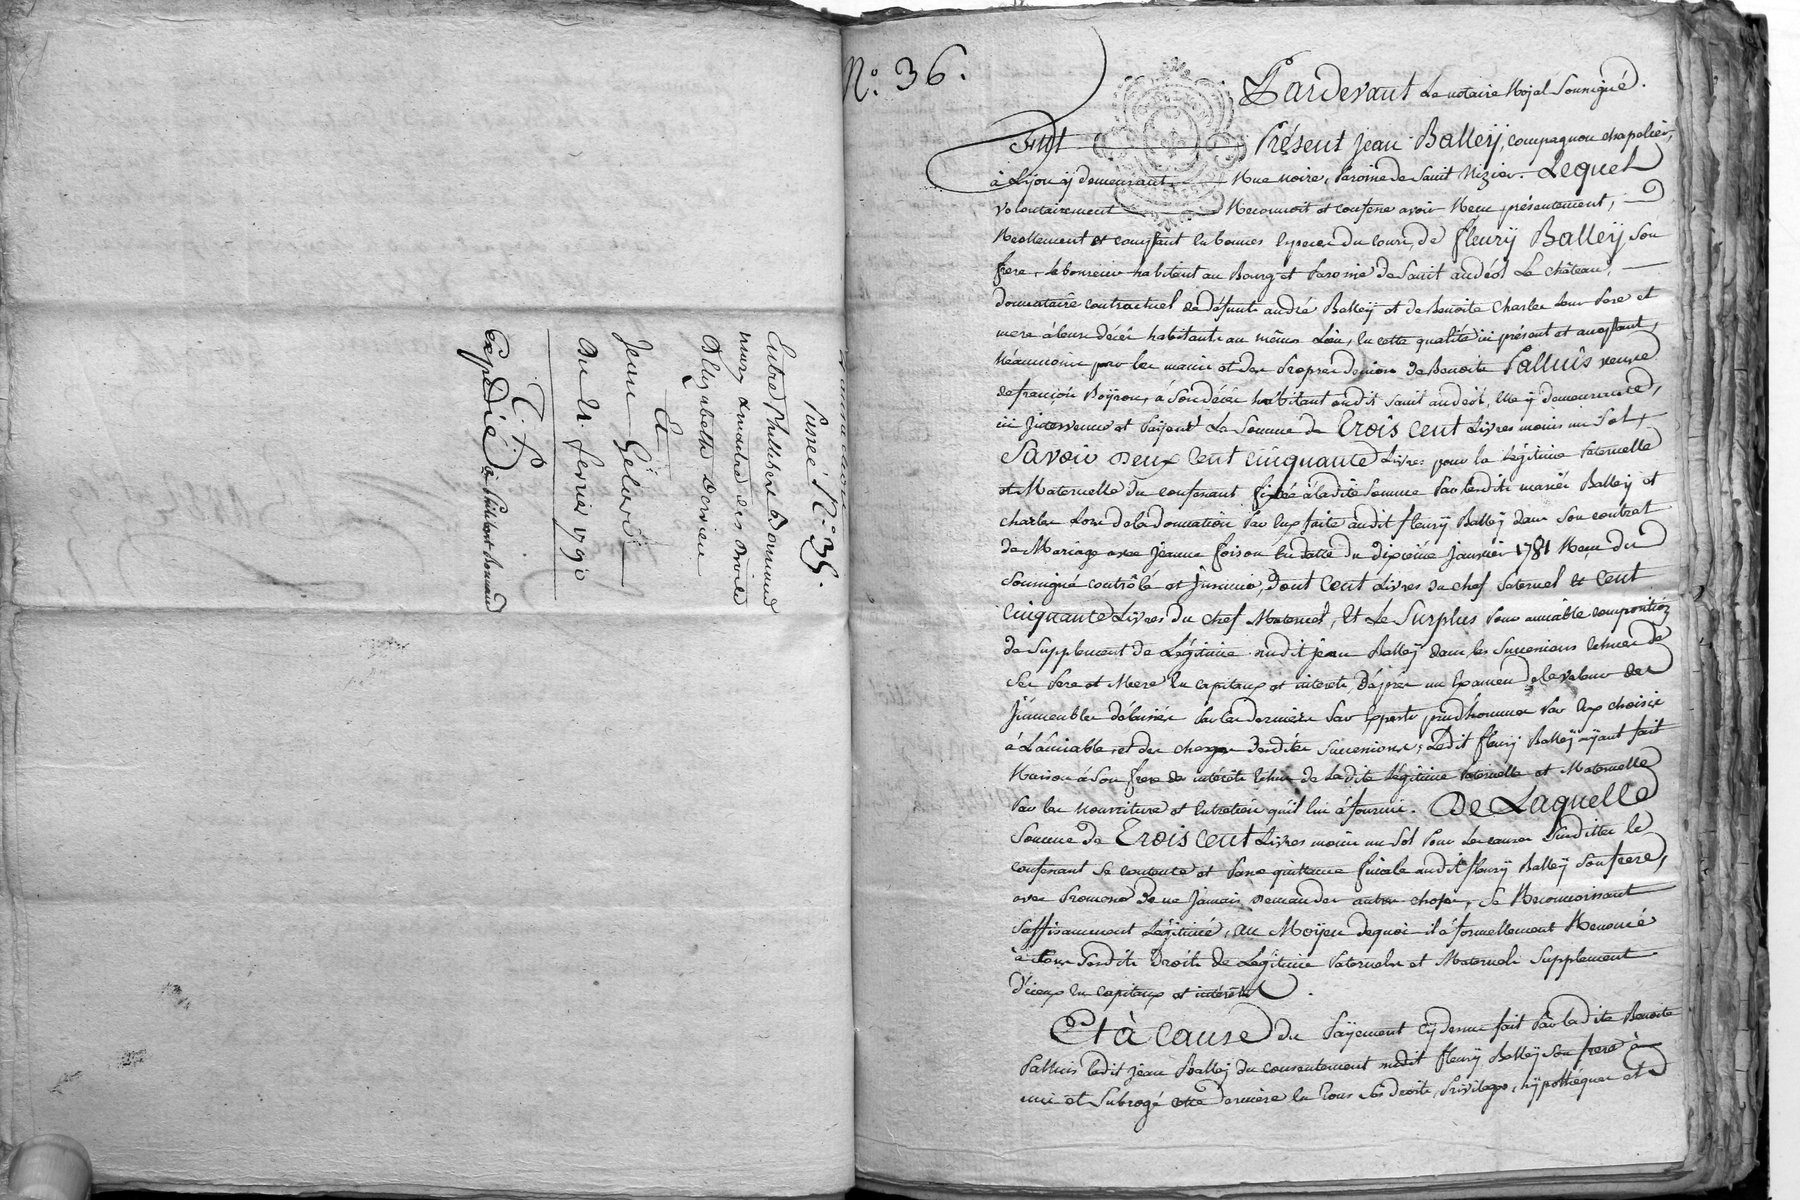 Passée N.° 35.
Entre Philibert Bonnand
mary
Elizabeth Dervieu
Et
Jean Gelard
Du 21. fevrier 1790
C. P.
Expédié à Philibert Bonnand
N.° 36.
Pardevant Le notaire Royal Sousigné.
Fut Présent Jean Balleÿ, compagnon chapelier,
à Lÿon ÿ demeurant Rue noire, Paroisse de Saint Nizier. Lequel
volontairement Reconnoit et confesse avoir Recu présentement,
Reellement et comptant en bonnes especes du cours, de fleurÿ Balleÿ Son
frere, laboureur habitant au Bourg et Paroisse de Saint andéol Le château,
donnataire contractuel de défunts andré Balleÿ et de Benoite Charles Leur Pere et
mere à leur décès habitants au même Lieu, en cette qualité ici présent et acceptant,
Néanmoins par les mains et des Propres deniers de Benoite Palluis veuve
de françois Boÿron, à Son décès habitant audit Saint andéol, elle ÿ demeurante,
ici Intervenue et Païent La Somme de Trois cent Livres moins un Sol,
Savoir deux cent cinquante Livres pour la Légitime Paternelle
et Maternelle du confessant fixée à ladite Somme Par lesdits mariés Balleÿ et
charles Lors de la donnation Par eux faite audit fleurÿ Balleÿ dans Son contrat
de Mariage avec Jeanne foison en datte du dixieme janvier 1781 Recu du
Sousigné contrôlé et Insinué, dont cent Livres du chef Paternel et cent
cinquante Livres du chef Maternel, Et Le Surplus Pour amiable composition
de Supplement de Légitime audit jean Balleÿ dans les Successions echues de
Ses Pere et Mere en capitaux et intérets, d'après un Examen de la valeur des
Immeubles délaissés Par les derniers Par Experts prudhommes Par eux choisis
à L'amiable et des charges desdites Successions, Ledit fleurÿ Balleÿ aÿant fait
Raison à Son frere des intérêts echus de Ladite Légitime Paternelle et Maternelle
Par les nourriture et Entretien qu'il lui à fourni. De Laquelle
Somme de Trois cent Livres moins un Sol Pour Les causes Susdittes le
confessant Se contente et Passe quittance finale audit fleurÿ Balleÿ Son frere,
avec Promesse De ne Jamais demander autre chose, Se Reconnoissant
Suffisamment Légitimé, au Moÿen dequoi il à formellement Renoncé
à tous Sesdits Droits de Légitime Paternels et Maternels Supplement
d'iceux en capitaux et intérêts.
Et à Cause du Païement cÿ dessus fait Par ladite Benoite
Palluis ledit Jean Balleÿ du consentement audit fleurÿ Balleÿ Son frere à
mis et Subrogé cette derniere en Tous Ses droits, Privileges, hÿpothéques et